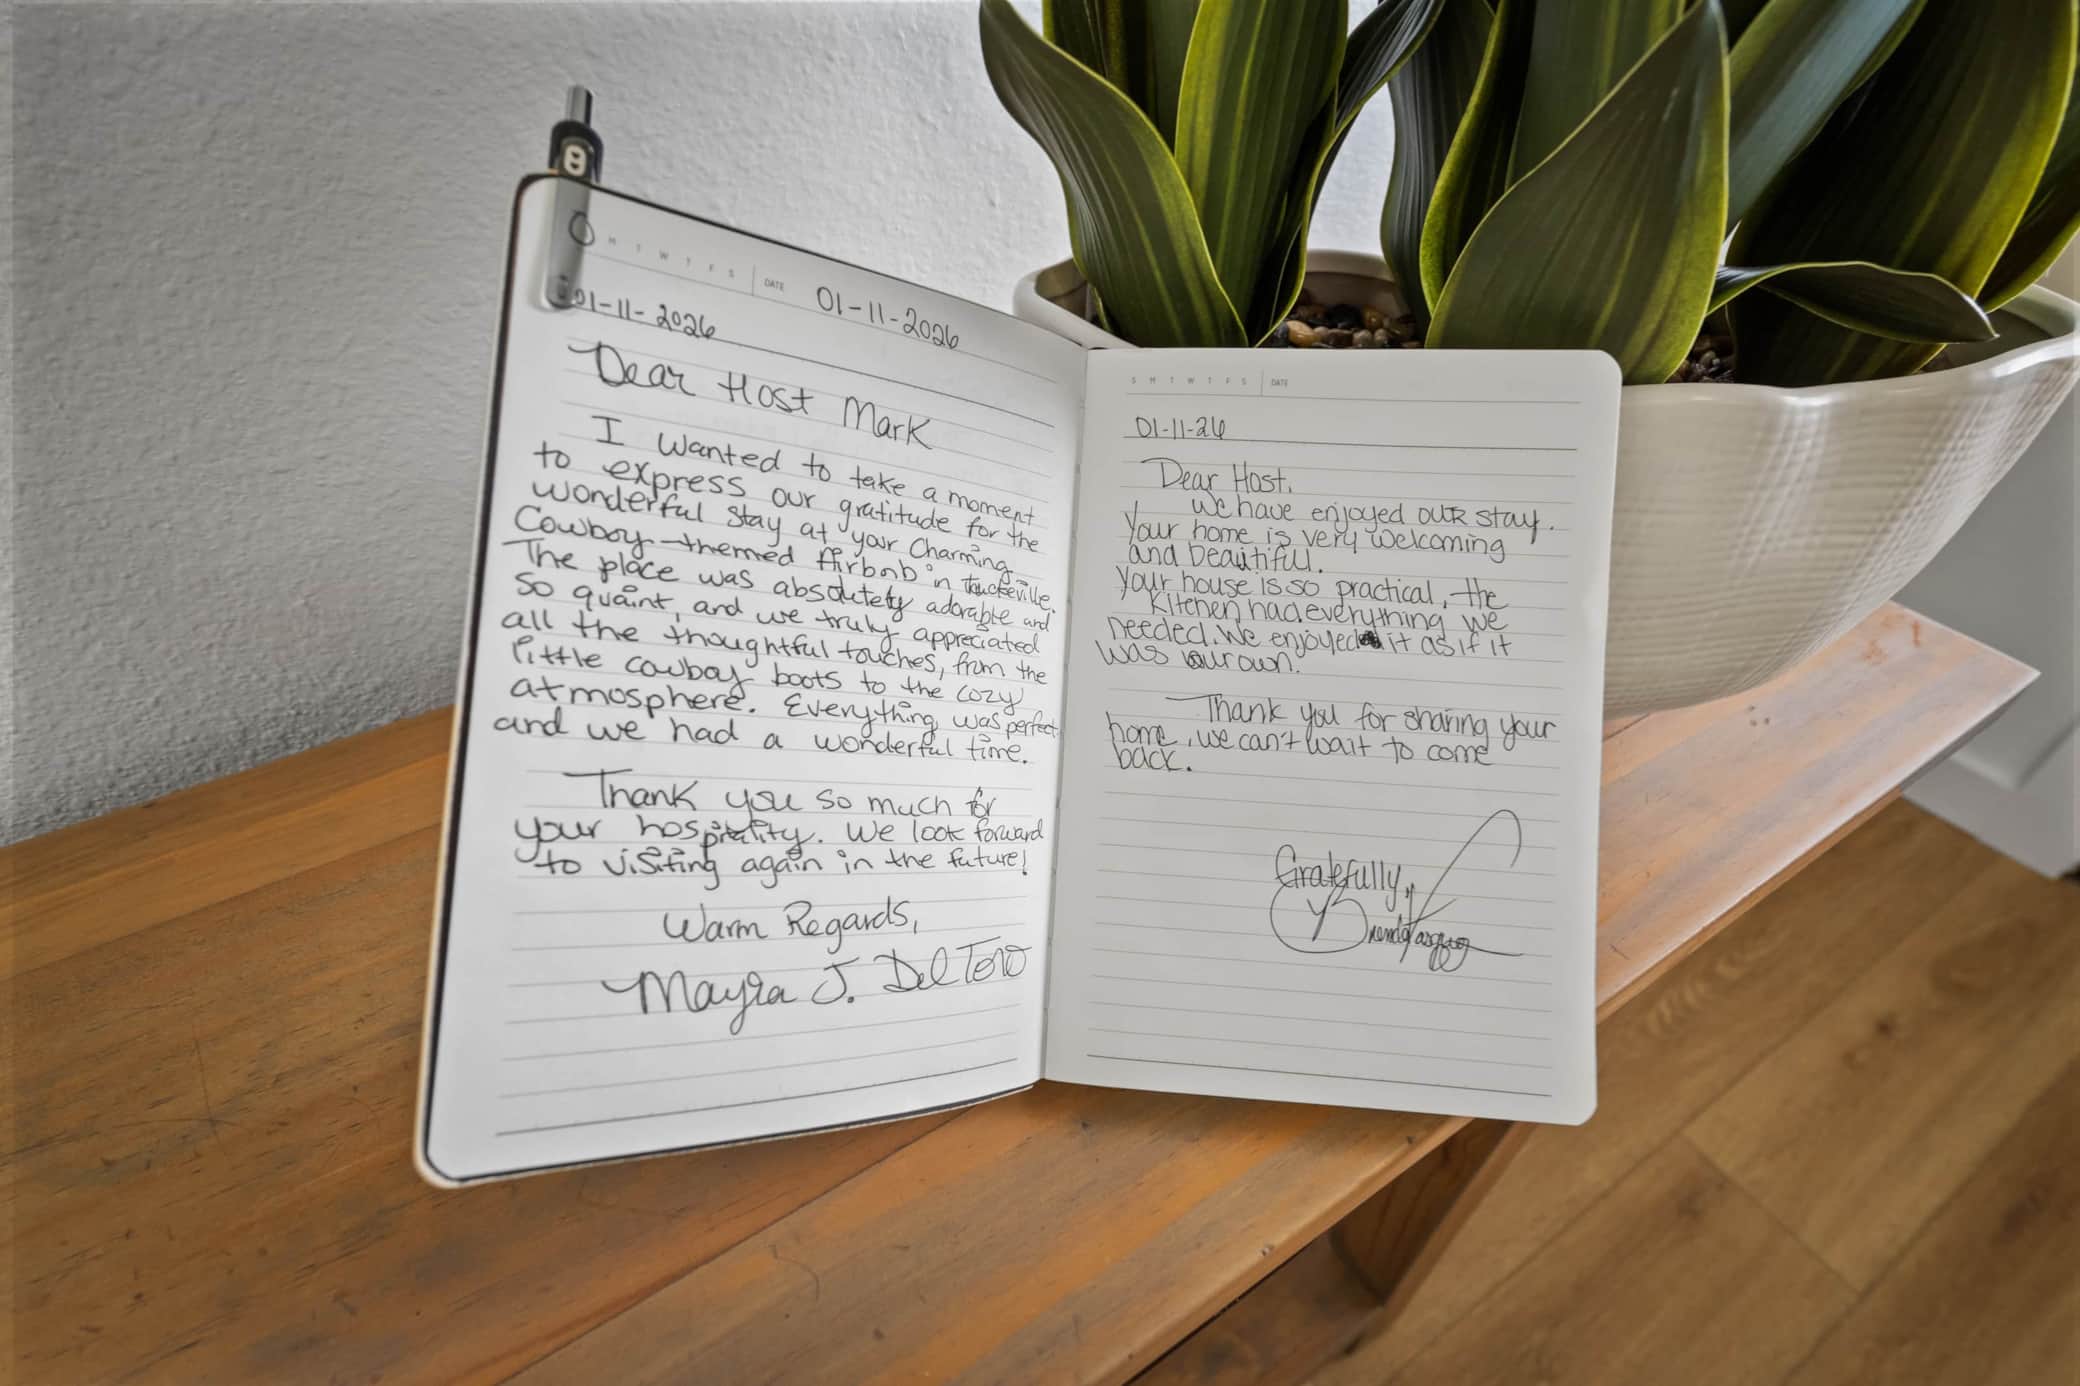 M T W T F S DATE 01-11-2026
01-11-2026
Dear Host Mark
I wanted to take a moment
to express our gratitude for the
wonderful stay at your Charming
Cowboy-themed Airbnb in
The place was absolutely adorable and
so quaint, and we truly appreciated
all the thoughtful touches, from the
little cowboy boots to the cozy
atmosphere. Everything was perfect
and we had a wonderful time.
Thank you so much for
your hospitality. We look forward
to visiting again in the future!
Warm Regards,
Mayra J. Del Toro
S M T W T F S DATE
01-11-26
Dear Host.
We have enjoyed our stay.
Your home is very welcoming
and beautiful.
Your house is so practical, the
kitchen had everything we
needed. We enjoyed it as if it
was our own.
Thank you for sharing your
home, we can't wait to come
back.
Gratefully,
Brenda Vasquez